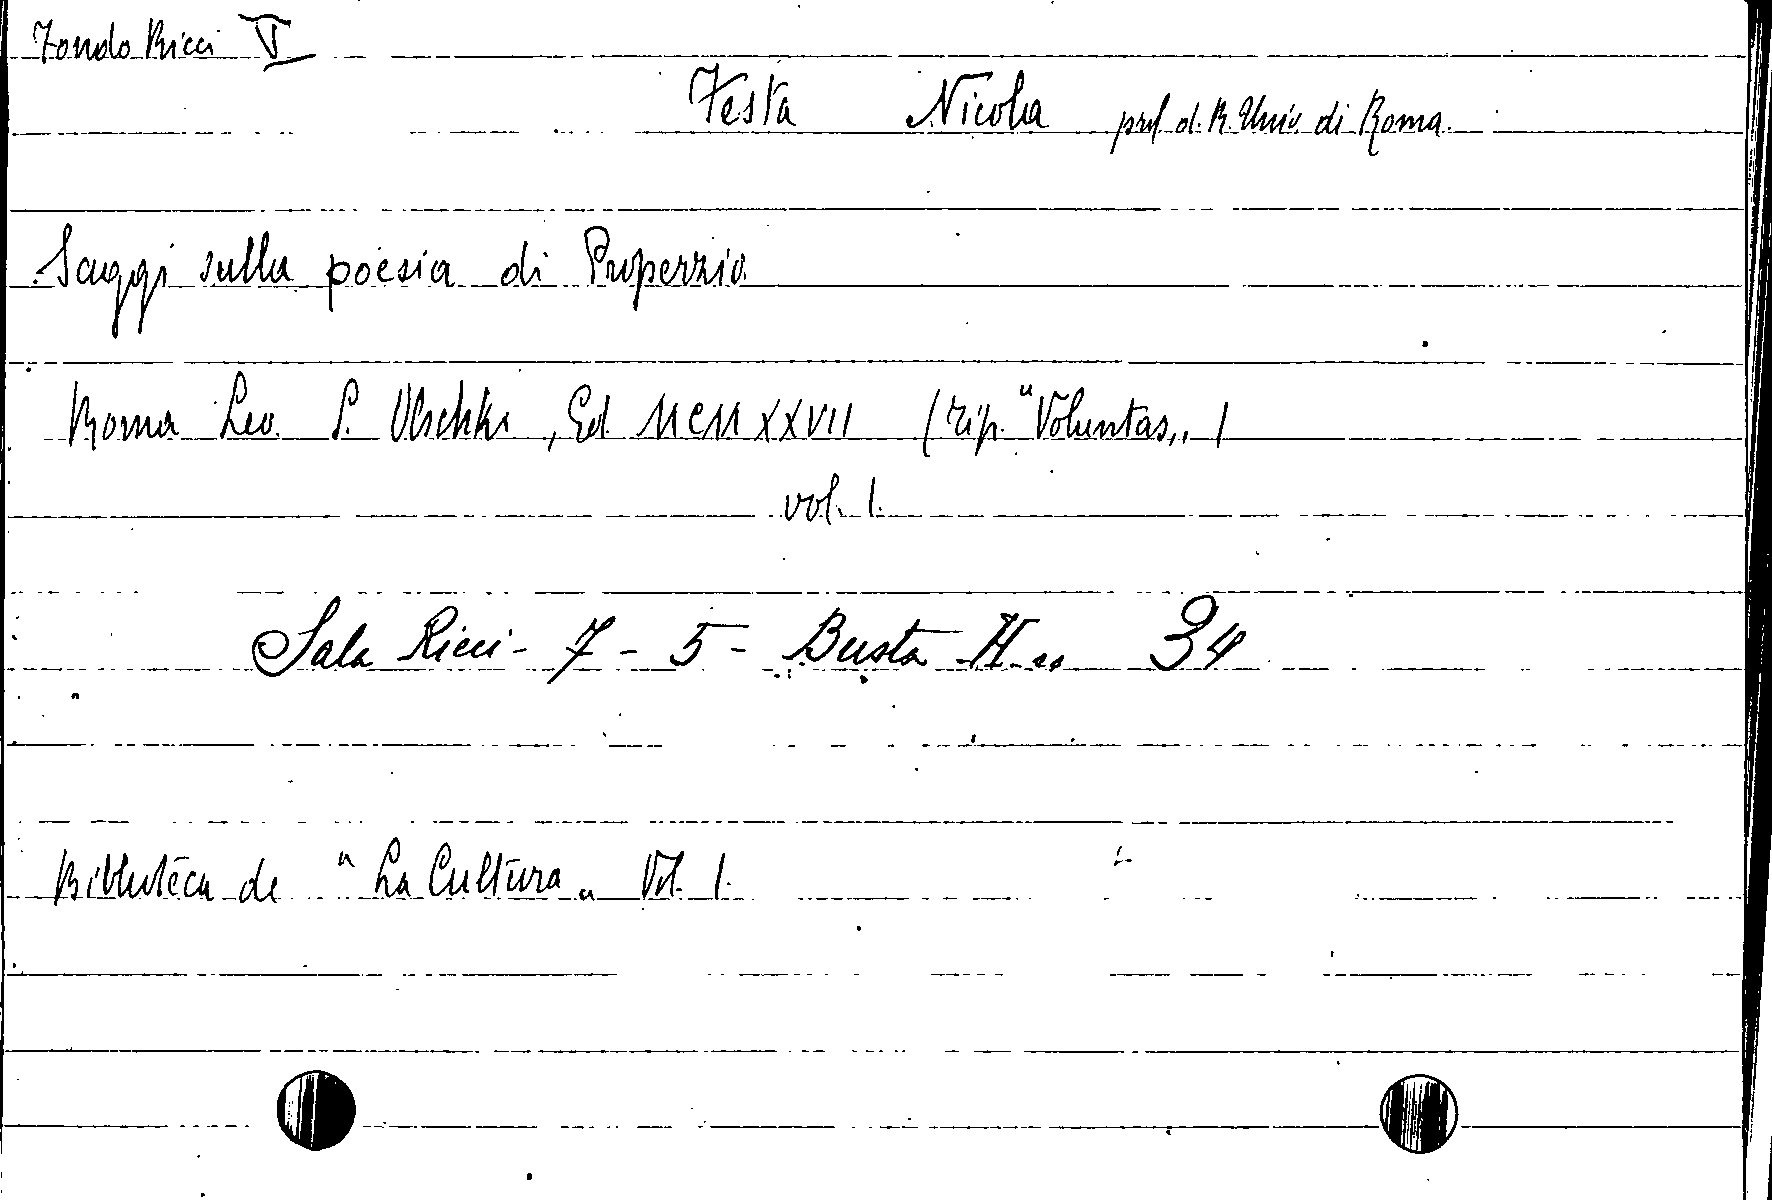 Fondo Ricci V
Festa Nicola prof. d. R. Univ. di Roma.
Saggi sulla poesia di Properzio
Roma Leo. S. Olschki, Ed. MCMXXVII (tip. "Voluntas„)
vol. I.
Sala Ricci - 7 - 5 - Busta H.. 34
Biblioteca de "La Cultura„ Vol. I.